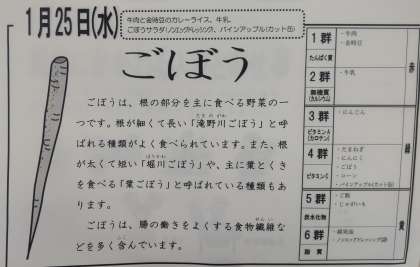 1月25日(水)
牛肉と金時豆のカレーライス、牛乳、
ごぼうサラダ(ノンエッグドレッシング)、パインアップル(カット缶)
ごぼう
ごぼうは、根の部分を主に食べる野菜の一
つです。根が細くて長い「滝野川ごぼう」と呼
ばれる種類がよく食べられています。また、根
が太くて短い「堀川ごぼう」や、主に葉とくき
を食べる「葉ごぼう」と呼ばれている種類もあ
ります。
ごぼうは、腸の働きをよくする食物繊維な
どを多く含んでいます。
1群
たんぱく質
・牛肉
・金時豆
2群
無機質
(カルシウム)
・牛乳
3群
ビタミンA
(カロテン)
・にんじん
4群
ビタミンC
・たまねぎ
・にんにく
・ごぼう
・コーン
・パインアップル(カット缶)
5群
炭水化物
・ご飯
・じゃがいも
6群
脂質
・ノンエッグドレッシング
赤
緑
黄